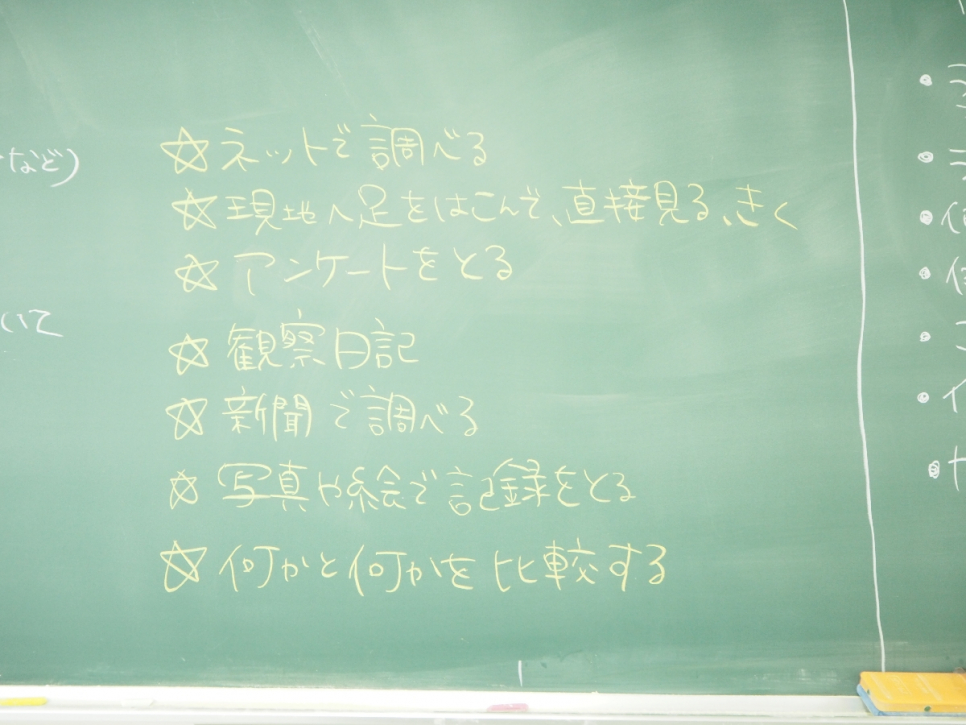 など)
いて
☆ネットで調べる
☆現地へ足をはこんで、直接見る、きく
☆アンケートをとる
☆観察日記
☆新聞で調べる
☆写真や絵で記録をとる
☆何かと何かを比較する